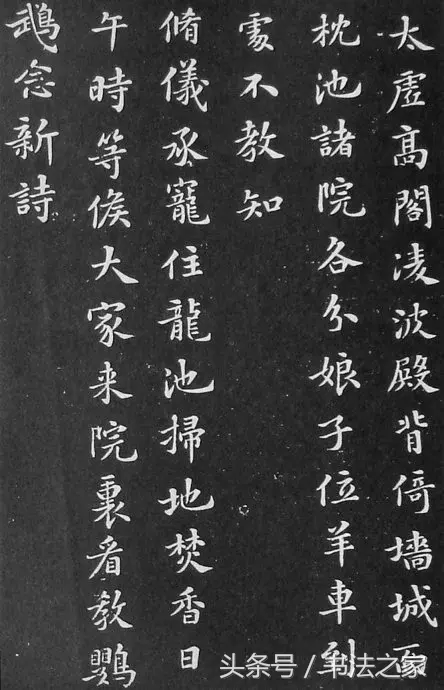 太虛高閣凌波殿背倚墻城面
枕池諸院各分娘子位羊車到
處不教知
脩儀承寵住龍池掃地焚香日
午時等候大家来院裏看教鸚
鵡念新詩
头条号/书法之家